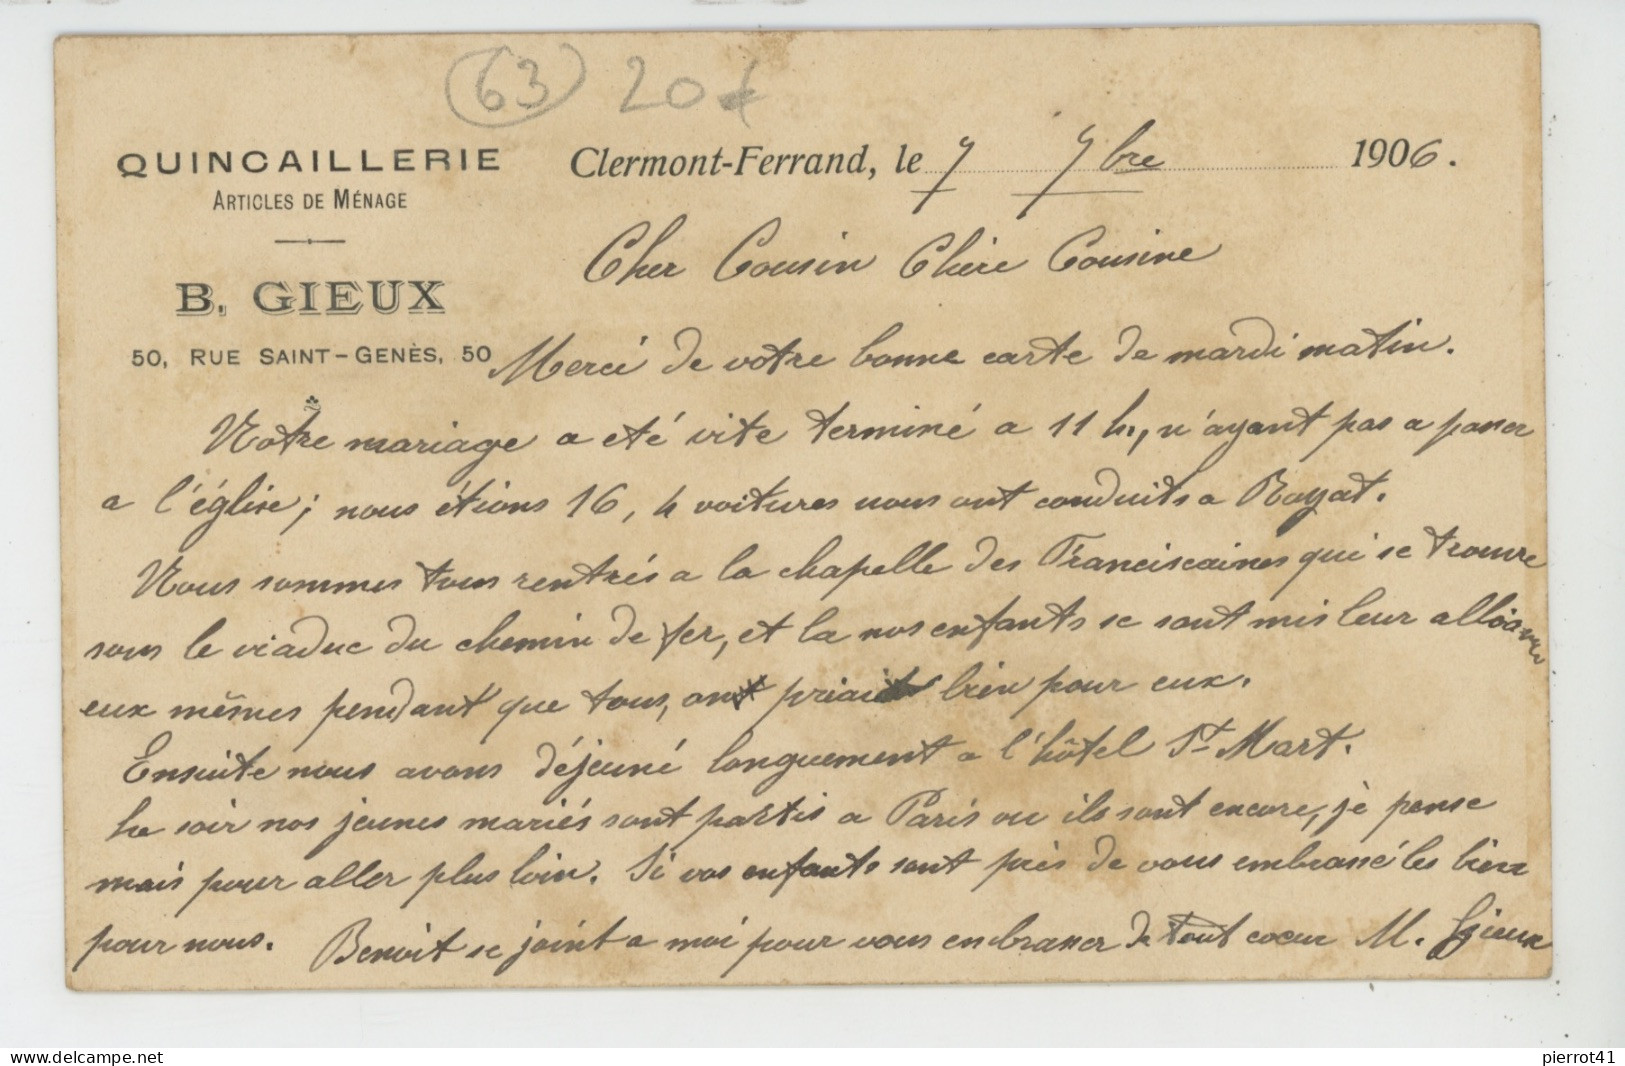 (63) 20€
QUINCAILLERIE
ARTICLES DE MÉNAGE
B. GIEUX
50, RUE SAINT-GENÈS, 50
Clermont-Ferrand, le 7 7bre 1906.
Cher Cousin Chère Cousine
Merci de votre bonne carte de mardi matin.
Notre mariage a eté vite terminé a 11 h., n'ayant pas a passer
a l'église; nous étions 16, 4 voitures nous ont conduits a Royat.
Nous sommes tous rentrés a la chapelle des Franciscaines qui se trouve
sous le viaduc du chemin de fer, et la nos enfants se sont mis leur alliances
eux mêmes pendant que tous, on priait bien pour eux.
Ensuite nous avons déjeuné longuement a l'hôtel St Mart.
Le soir nos jeunes mariés sont partis a Paris ou ils sont encore, je pense
mais pour aller plus loin. Si vos enfants sont près de vous embrassé les bien
pour nous. Benoit se joint a moi pour vous embrasser de tout coeur M. Gieux
pierrot41